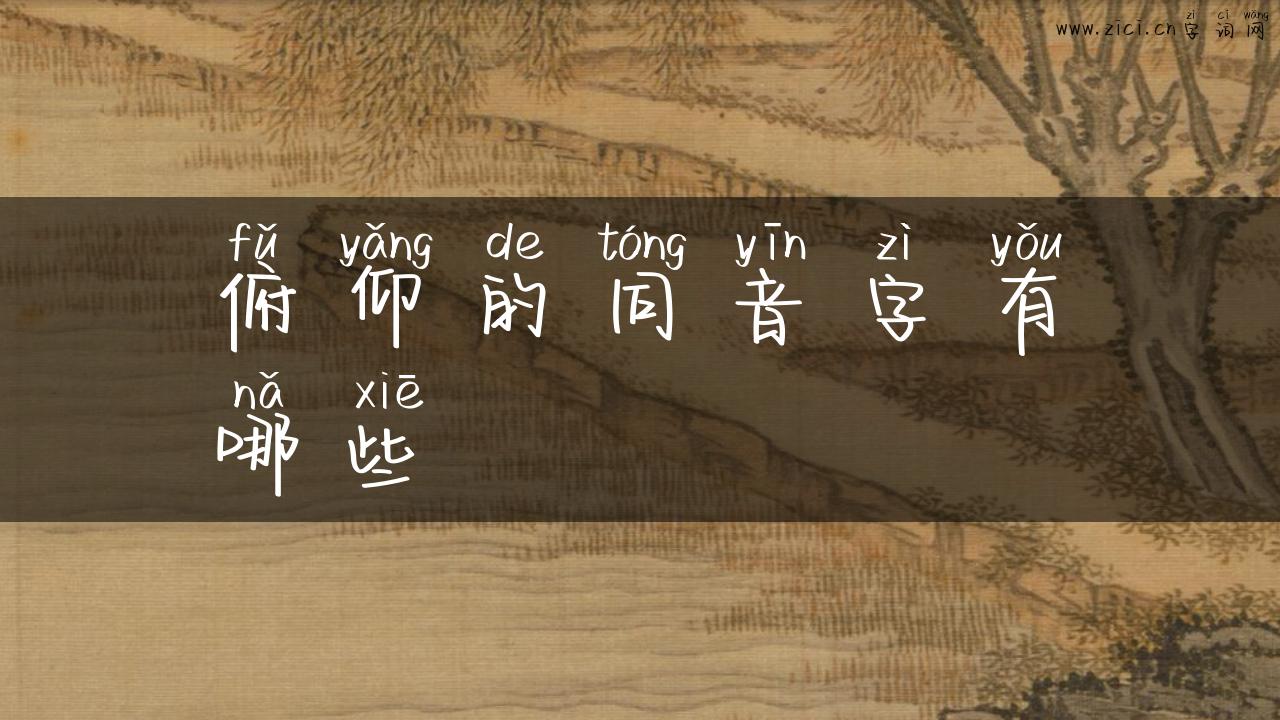 zì cí wǎng
www.zici.cn字词网
fǔ yǎng de tóng yīn zì yǒu
俯仰的同音字有
nǎ xiē
哪些